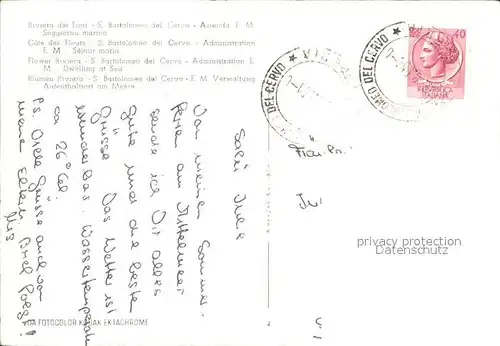 Riviera dei Fiori - S. Bartolomeo del Cervo - Azienda E. M.
Soggiorno marino
Côte des Fleurs - S. Bartolomeo del Cervo - Administration
E. M. - Séjour marin
Flower Riviera - S. Bartolomeo del Cervo - Administration
E. M. - Dwelling at Sea
Blumen Riviera - S. Bartolomeo del Cervo - E. M. Verwaltung
Aufenthaltsort am Meere
Von meinen Sommer-
ferien am Mittelmeer
sende ich Dir alles
gute und die beste
Grüsse. Das Wetter ist
wunderbar. Wassertemperatur
ca 26° Cel.
Ps. Viele Grüsse auch von
meine Eltern. Brief folgt!
DEL CERVO
BARTOLOMEO DEL CERVO
40
REPVBBLICA
ITALIANA
privacy protection
Datenschutz
FOTOCOLOR KODAK EKTACHROME